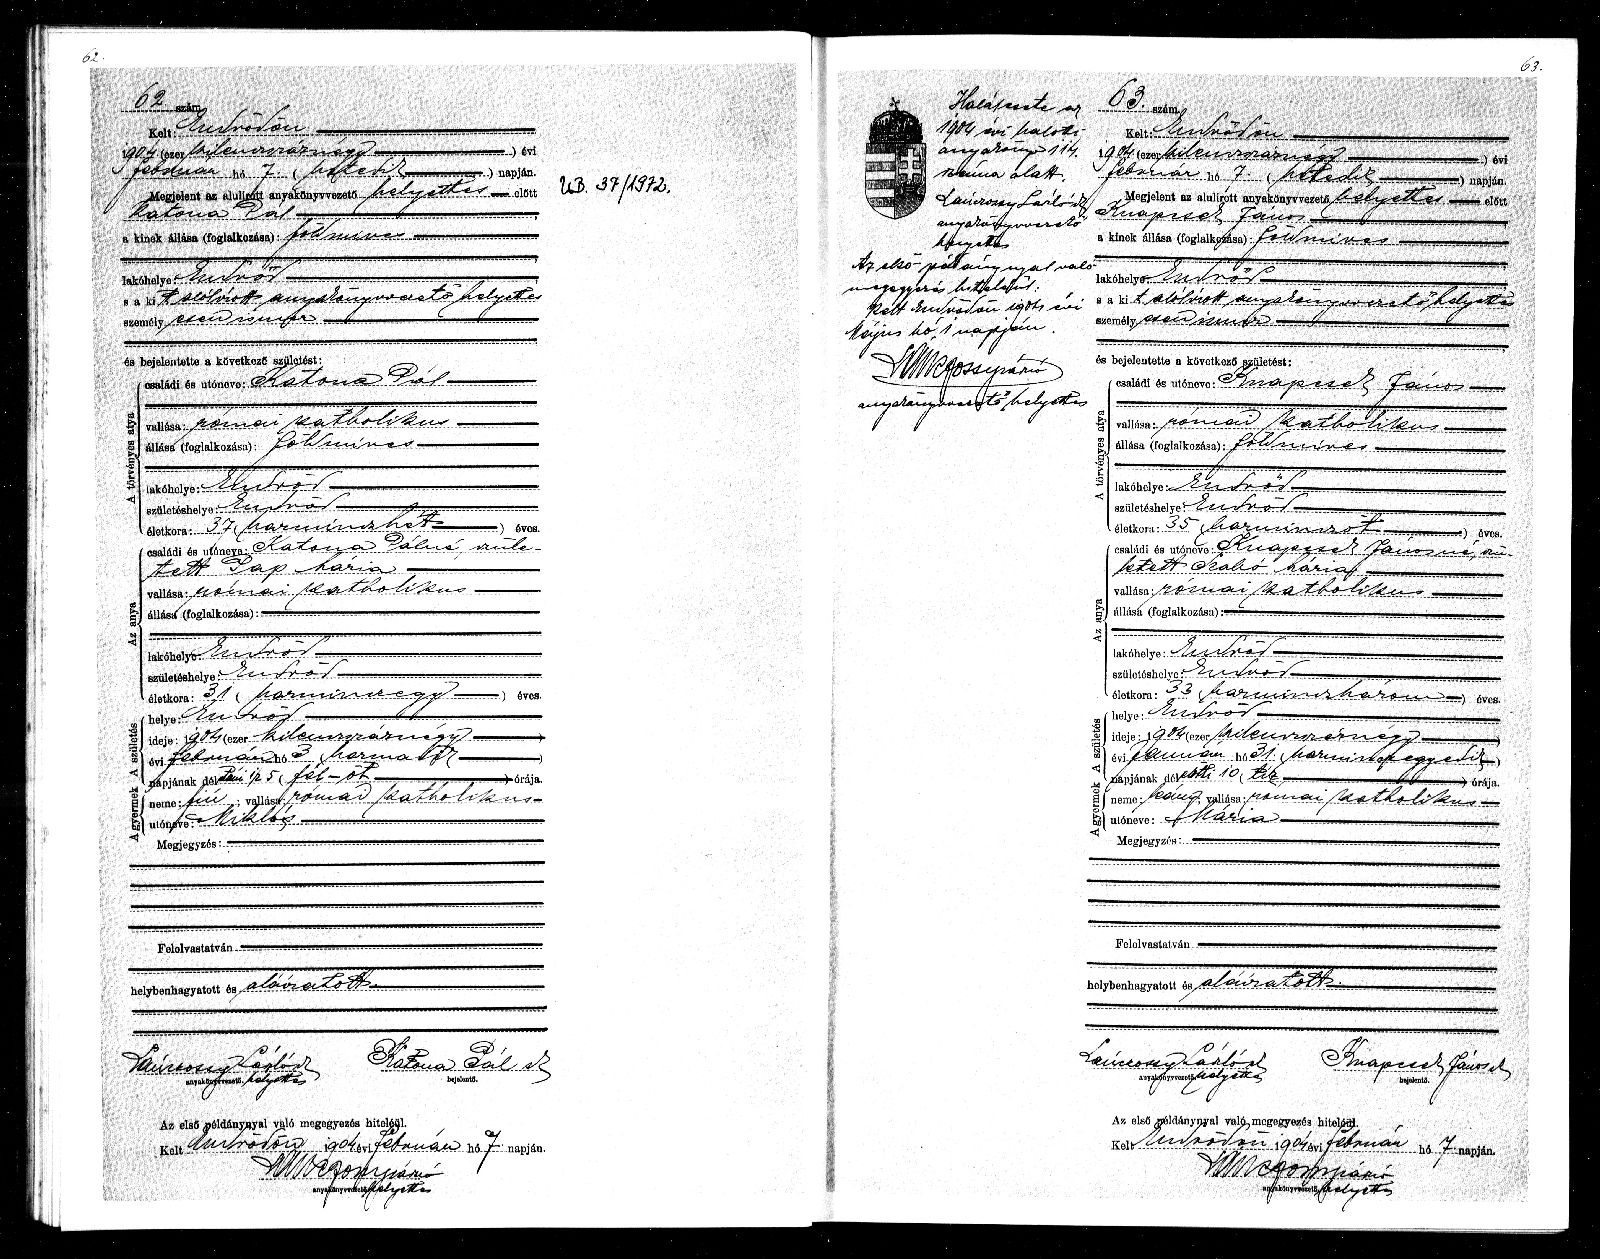 62.
62 szám.
Kelt: Endrődön
1904 (ezer kilenczszáznégy) évi
február hó 7. (hetedik) napján.
Megjelent az alulirott anyakönyvvezető helyettes előtt
Katona Pál
a kinek állása (foglalkozása): földmives
lakóhelye: Endrőd
s a kit alólirott anyakönyvvezető helyettes
személyesen ismer
és bejelentette a következő születést:
A törvényes atya
családi és utóneve: Katona Pál
vallása: római katholikus
állása (foglalkozása): földmives
lakóhelye: Endrőd
születéshelye: Endrőd
életkora: 37 (harminczhét) éves.
Az anya
családi és utóneve: Katona Pálné, szüle-
tett Pap Mária
vallása: római katholikus
állása (foglalkozása):
lakóhelye: Endrőd
születéshelye: Endrőd
életkora: 31 (harminczegy) éves.
A gyermek A születés
helye: Endrőd
ideje: 1904 (ezer kilenczszáznégy)
évi február hó 3 (harmadik)
napjának dél 1/2 5 (fél-öt) órája.
neme: fiú; vallása: római katholikus
utóneve: Miklós
Megjegyzés:
Felolvastatván
helybenhagyatott és aláiratott.
László sk
anyakönyvvezető helyettes
Katona Pál sk
bejelentő.
Az első példánynyal való megegyezés hiteléül.
Kelt Endrődön 1904 évi február hó 7 napján.
anyakönyvvezető helyettes
UB. 37/1972.
63.
Halálesete az
1904 évi haloti
anyakönyv 114.
száma alatt.
László sk
anyakönyvvezető
helyettes
Az első példánynyal való
megegyezés hiteléül:
Kelt Endrődön 1904 évi
Május hó 1 napján.
anyakönyvvezető helyettes
63. szám.
Kelt: Endrődön
1904 (ezer kilenczszáznégy) évi
február hó 7. (hetedik) napján.
Megjelent az alulirott anyakönyvvezető helyettes előtt
Knapcsek János
a kinek állása (foglalkozása): földmives
lakóhelye: Endrőd
s a kit alólirott anyakönyvvezető helyettes
személyesen ismer
és bejelentette a következő születést:
A törvényes atya
családi és utóneve: Knapcsek János
vallása: római katholikus
állása (foglalkozása): földmives
lakóhelye: Endrőd
születéshelye: Endrőd
életkora: 35 (harminczöt) éves.
Az anya
családi és utóneve: Knapcsek Jánosné, szü-
letett Szabó Mária
vallása: római katholikus
állása (foglalkozása):
lakóhelye: Endrőd
születéshelye: Endrőd
életkora: 33 (harminczhárom) éves.
A gyermek A születés
helye: Endrőd
ideje: 1904 (ezer kilenczszáznégy)
évi január hó 31 (harminczegyedik)
napjának délelőtti 10 (tiz) órája.
neme: leány; vallása: római katholikus
utóneve: Mária
Megjegyzés:
Felolvastatván
helybenhagyatott és aláiratott.
László sk
anyakönyvvezető helyettes
Knapcsek János sk
bejelentő.
Az első példánynyal való megegyezés hiteléül.
Kelt Endrődön 1904 évi február hó 7 napján.
anyakönyvvezető helyettes